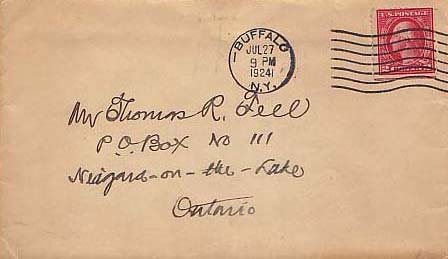 BUFFALO
JUL 27
9 PM
1924
N.Y.
U.S. POSTAGE
Mr Thomas R. Fell
P.O. Box No 111
Niagara-on-the-Lake
Ontario